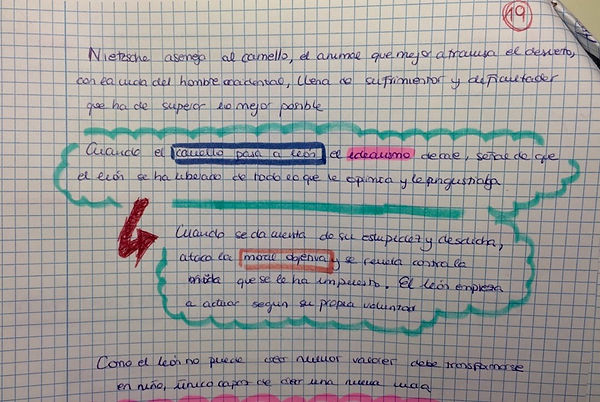 19
Nietzsche asemeja al camello, el animal que mejor atraviesa el desierto,
con la vida del hombre occidental, llena de sufrimientos y dificultades
que ha de superar lo mejor posible
Cuando el camello pasa a león el idealismo deme, señal de que
el león se ha liberado de todo lo que le oprimía y le angustiaba
Cuando se da cuenta de su estupidez y desdicha,
ataca la moral objetiva y se revela contra la
que se le ha impuesto. El león empieza
a actuar según su propia voluntad
Como el león no puede crear nuevos valores debe transformarse
en niño, único capaz de crear una nueva vida